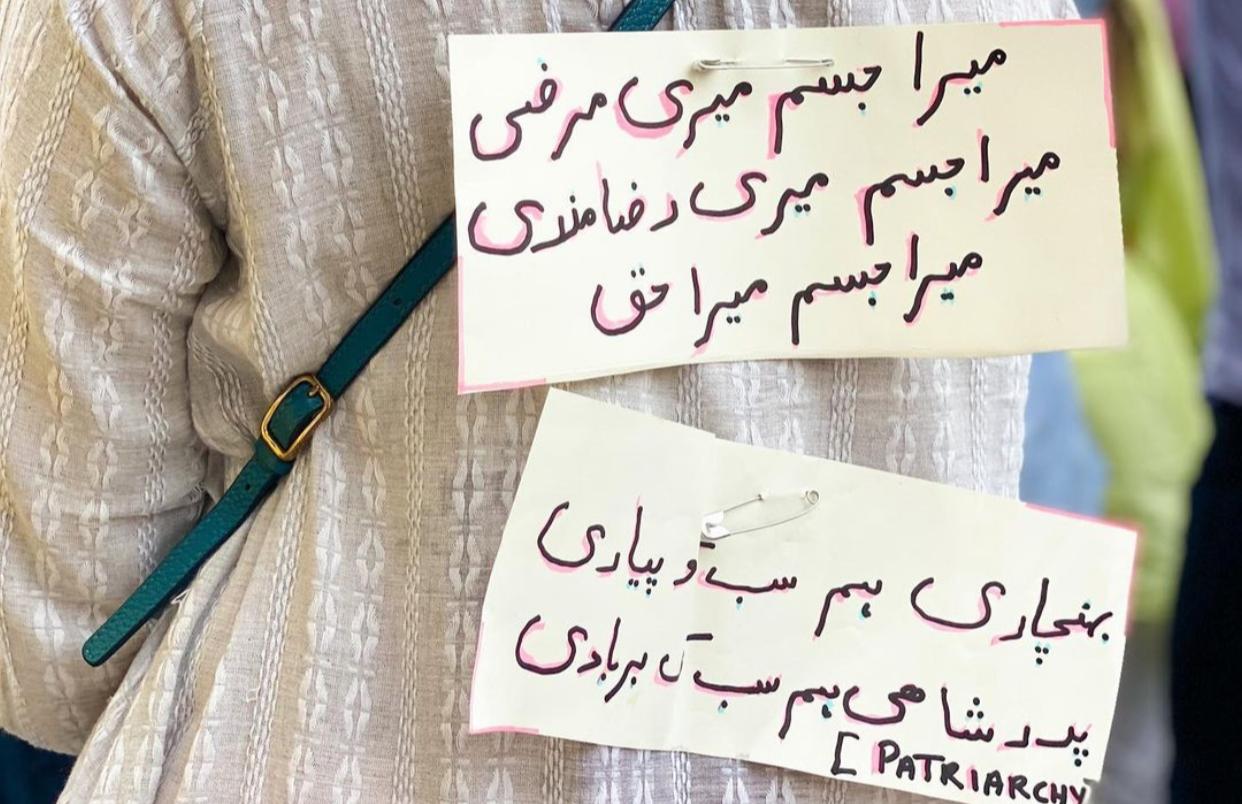 میرا جسم میری مرضی
میرا جسم میری رضامندی
میرا جسم میرا حق
ہم سب پیاری
پدر شاهی ہم سب بربادی
[PATRIARCHY